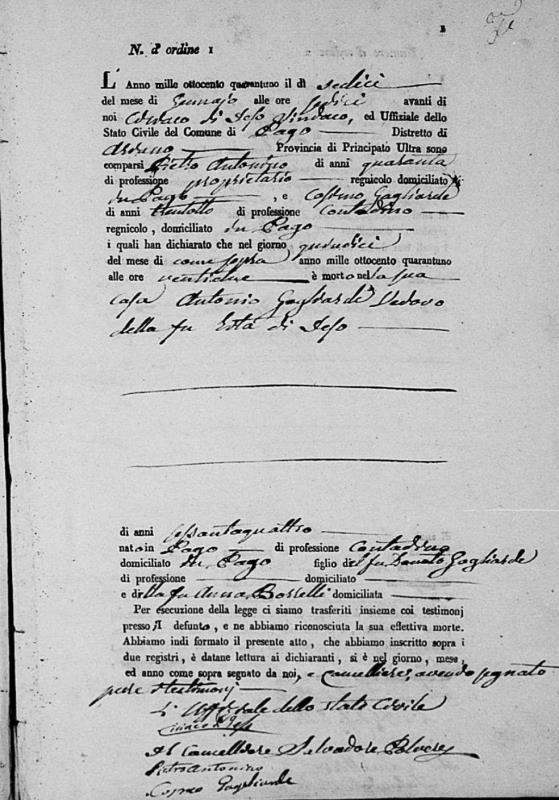 1
N. d'ordine 1
L'Anno mille ottocento quarantuno il dì sedici
del mese di Gennajo alle ore sedici avanti di
noi Ciriaco di Jeso Sindaco, ed Uffiziale dello
Stato Civile del Comune di Pago Distretto di
Ariano Provincia di Principato Ultra sono
comparsi Pietro Antonino di anni quaranta
di professione proprietario regnicolo domiciliato
in Pago, e Cosimo Gagliarde
di anni trentotto di professione contadino
regnicolo, domiciliato in Pago
i quali han dichiarato che nel giorno quindici
del mese di come sopra anno mille ottocento quarantuno
alle ore ventidue è morto nella sua
casa Antonio Gagliarde Vedovo
della fu di Jeso
di anni sessantaquattro
nato in Pago di professione contadino
domiciliato in Pago figlio del fu Donato Gagliarde
di professione domiciliato
e della fu Anna Bosselli domiciliata
Per esecuzione della legge ci siamo trasferiti insieme coi testimonj
presso il defunto, e ne abbiamo riconosciuta la sua effettiva morte.
Abbiamo indi formato il presente atto, che abbiamo inscritto sopra i
due registri, è datane lettura ai dichiaranti, si è nel giorno, mese,
ed anno come sopra segnato da noi, e Cancelliere, avendo segnato
pure i testimonj
L'Uffiziale dello Stato Civile
Ciriaco di Jeso
Il Cancelliere Salvadore Polvere
Pietro Antonino
Cosimo Gagliarde